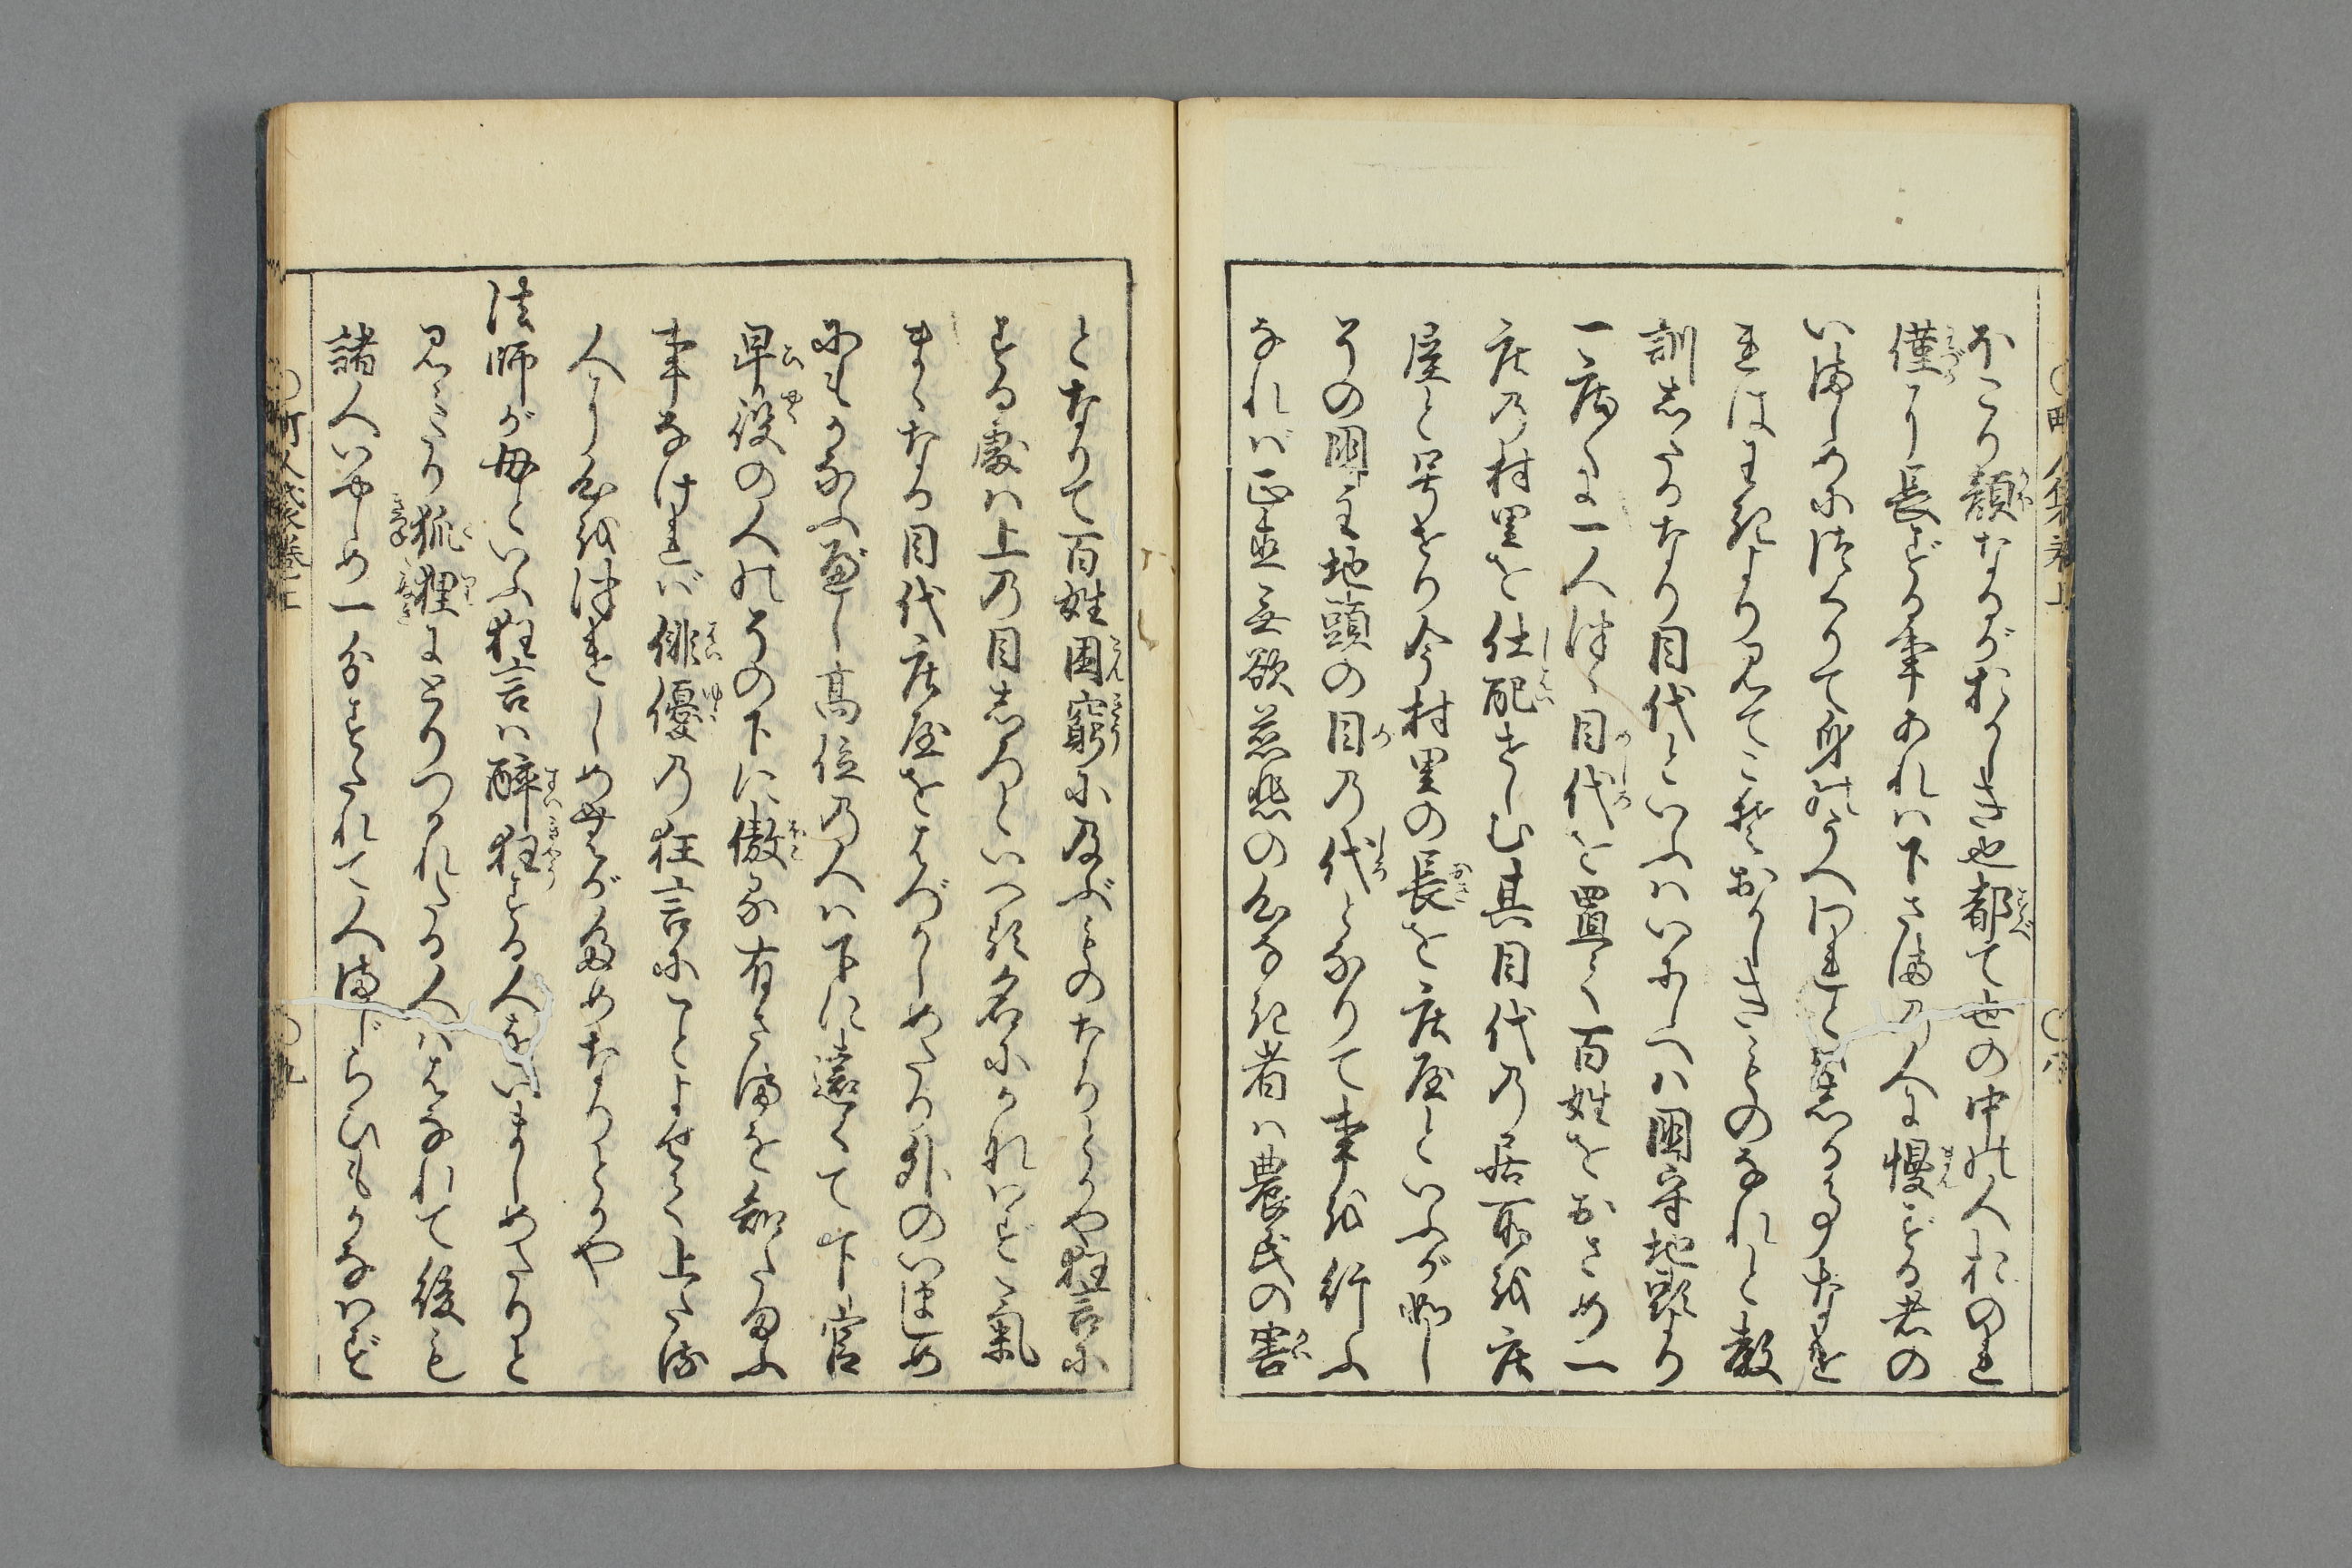 ほこり顔なるがおかしき也都て世の中の人おのれ
僅に長ずる事あれば下ざまの人に慢ずる者の
いましめに作りて身のうへにれと
ればわきより見てこそおかしきものなれと教
訓したるなり目代といふはいにしへは国守地頭より
一庄に一人づゝ目代を置て百姓をおさめ一
庄の村里を仕配せしむ其目代の居所を庄
屋と号せり今村里の長を庄屋といふが如し
その国主地頭の目の代となりて事を行ふ
なれば正直無欲慈悲の心なき者は農民の害
となりて百姓困窮に及ぶものなりとかや狂言に
する處は上の目しろといへる名にかなはず気
まゝなる目代庄屋をはづかしめたる外のいましめ
にもかなふべし高位の人は下に遠くて下官
早役の人のその下に傲る有さまを知たまふ
事なければ俳優の狂言にことよせて上つ
人に御心を付させしめせんがためなりとかや
法師が母といふ狂言は酔狂する人をいましめたりと
見えたり狐狸にとりつかれたる人ははなれて後も
諸人いやしめ一分すたれて人まじらひもかなはず